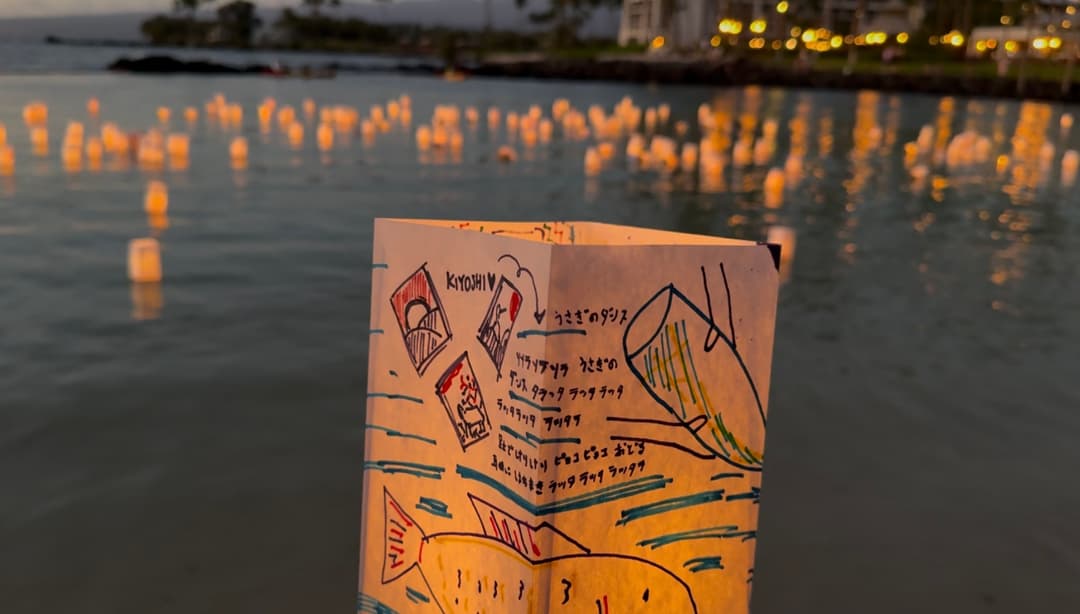 KIYOSHI♥
うさぎのダンス
ソソラソラソラ うさぎの
ダンス タラッタ ラッタ ラッタ
ラッタラッタ ラッタラ
足で けりけり ピョコ ピョコ おどる
耳に はちまき ラッタ ラッタ ラッタラ